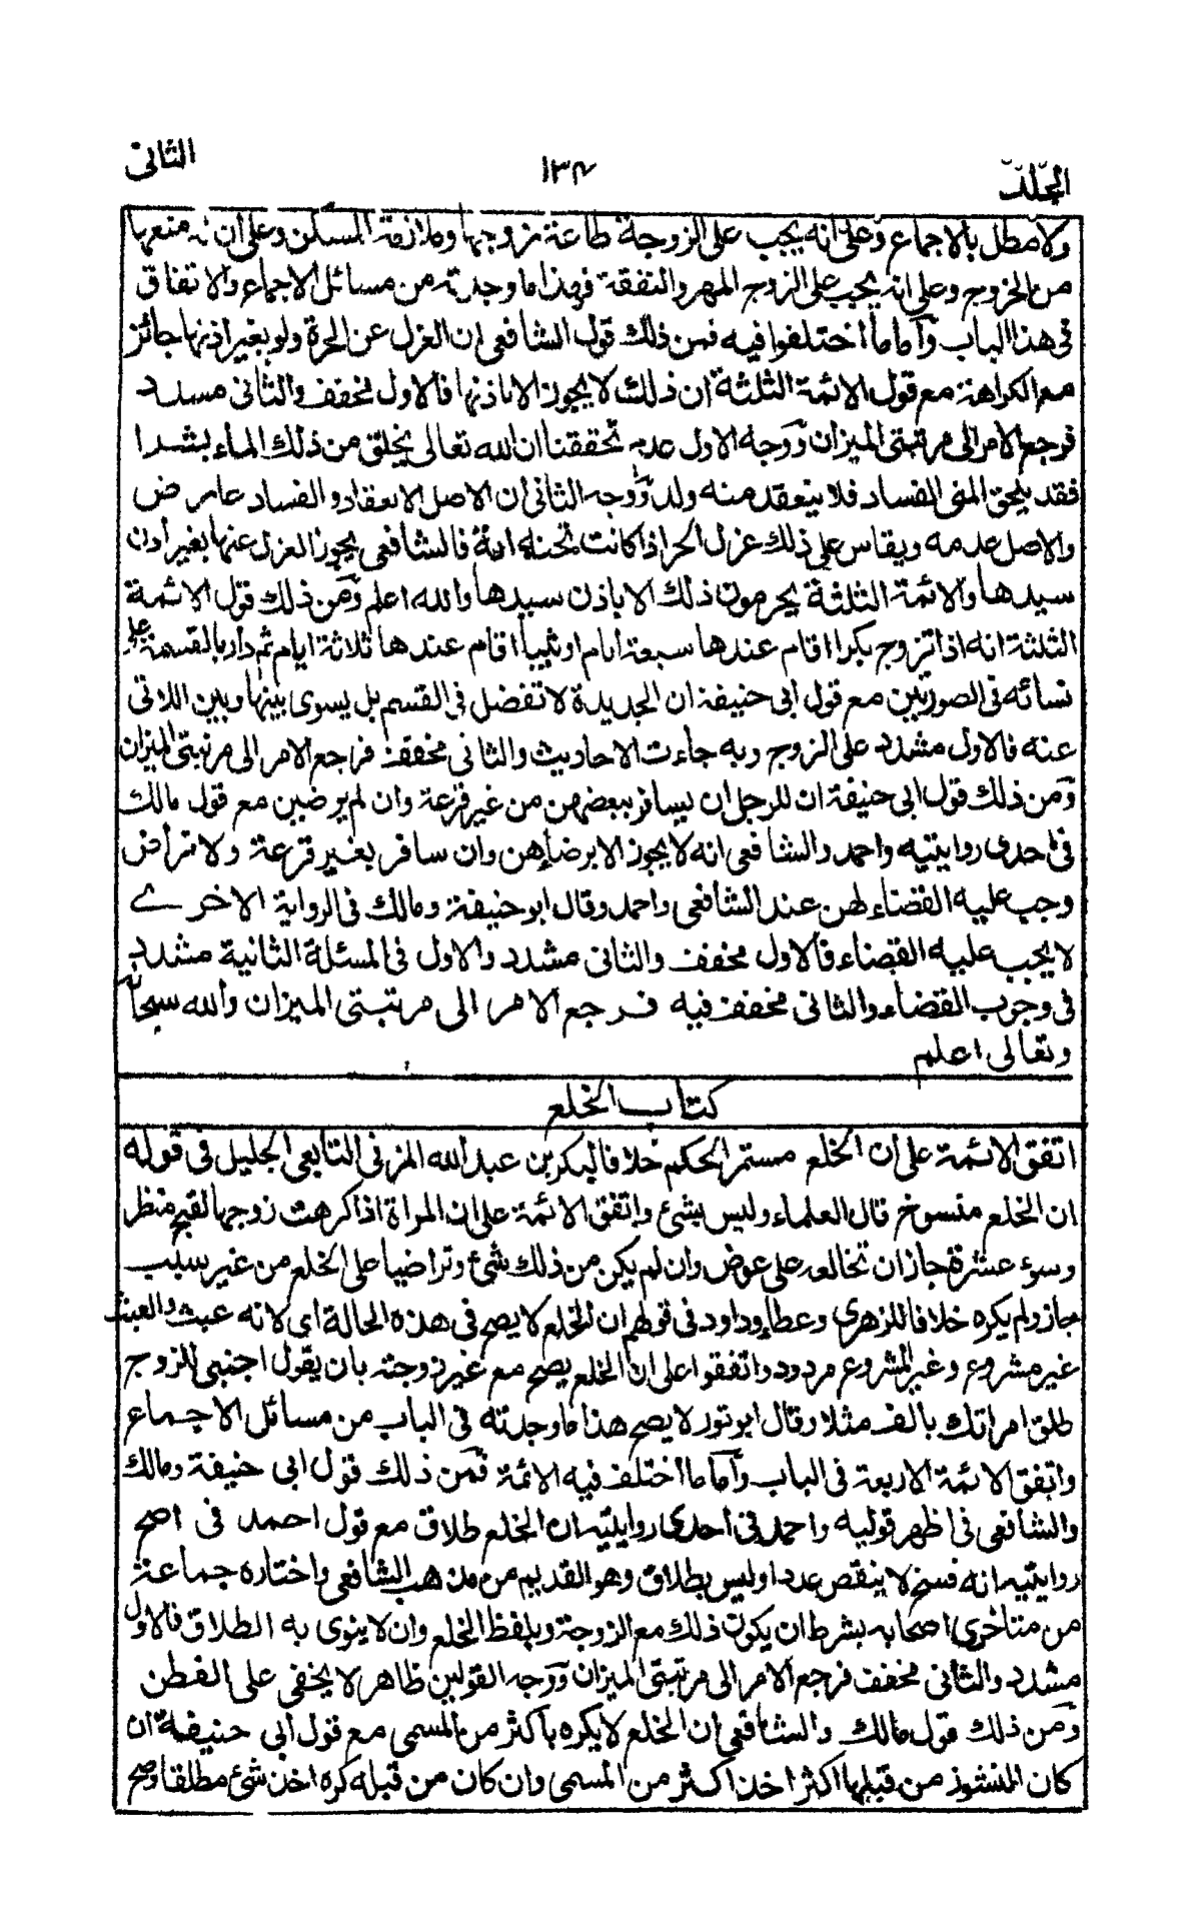 الجلد ١٣٤ الثانى
ولامطل بالاجماع وعلى انه يجب على الزوجة طاعة زوجها وملازمة المسكن وعلى ان له منعها
من الخروج وعلى انه يجب على الزوج المهر والنفقة فهذا ما وجدته من مسائل الاجماع والاتفاق
فى هذا الباب وأما ما اختلفوا فيه فمن ذلك قول الشافعى ان العزل عن الحرة ولو بغير اذنها جائز
مع الكراهة مع قول الائمة الثلثة ان ذلك لا يجوز الا باذنها فالاول مخفف والثانى مسدد
فرجع الامر الى مرتبتى الميزان ووجه الاول عدم تحققنا ان الله تعالى يخلق من ذلك الماء بشرا
فقد يلحق المنى الفساد فلا ينعقد منه ولد ووجه الثانى ان الاصل الانعقاد والفساد عارض
والاصل عدمه ويقاس على ذلك عزل الحر اذا كانت تحته امة فالشافعى يجوز العزل عنها بغير اذن
سيدها والائمة الثلثة يحرمون ذلك الا باذن سيدها والله اعلم ومن ذلك قول الائمة
الثلثة انه اذا تزوج بكرا اقام عندها سبعة ايام او ثيبا اقام عندها ثلاثة ايام ثم دار بالقسمة على
نسائه فى الصورتين مع قول ابى حنيفة ان الجديدة لا تفضل فى القسم بل يسوى بينها وبين اللاتى
عنه فالاول مشدد على الزوج وبه جاءت الاحاديث والثانى مخفف فرجع الامر الى مرتبتى الميزان
ومن ذلك قول ابى حنيفة ان للرجل ان يسافر ببعضهن من غير قرعة وان لم يرضين مع قول مالك
فى احدى روايتيه واحمد والشافعى انه لا يجوز الا برضاهن وان سافر بغير قرعة ولا تراض
وجب عليه القضاء لهن عند الشافعى واحمد وقال ابو حنيفة ومالك فى الرواية الاخرے
لا يجب عليه القضاء فالاول مخفف والثانى مشدد والاول فى المسئلة الثانية مشدد
فى وجوب القضاء والثانى مخفف فيه فرجع الامر الى مرتبتى الميزان والله سبحانه
وتعالى اعلم
كتاب الخلع
اتفق الائمة على ان الخلع مستمر الحكم خلافا لبكر بن عبد الله المزنى التابعى الجليل فى قوله
ان الخلع منسوخ قال العلماء وليس بشئ واتفق الائمة على ان المراة اذا كرهت زوجها لقبح منظر
وسوء عشرة جاز ان تخالعه على عوض وان لم يكن من ذلك شئ وتراضيا على الخلع من غير سبب
جاز ولم يكره خلافا للزهرى وعطاء وداود فى قولهم ان الخلع لا يصح فى هذه الحالة اى لانه عبث والعبث
غير مشروع وغير المشروع مردود واتفقوا على ان الخلع يصح مع غير زوجته بان يقول اجنبى للزوج
طلق امراتك بالف مثلا وقال ابو ثور لا يصح هذا ما وجدته فى الباب من مسائل الاجماع
واتفق الائمة الاربعة فى الباب وأما ما اختلف فيه الائمة فمن ذلك قول ابى حنيفة ومالك
والشافعى فى اظهر قوليه واحمد فى احدى روايتيه ان الخلع طلاق مع قول احمد فى اصح
روايتيه انه فسخ لا ينقص عددا وليس بطلاق وهو القديم من مذهب الشافعى واختاره جماعة
من متأخرى اصحابه بشرط ان يكون ذلك مع الزوجة وبلفظ الخلع وان لا ينوى به الطلاق فالاول
مشدد والثانى مخفف فرجع الامر الى مرتبتى الميزان ووجه القولين ظاهر لا يخفى على الفطن
ومن ذلك قول مالك والشافعى ان الخلع لا يكره باكثر من المسمى مع قول ابى حنيفة ان
كان النشوز من قبلها اكثر اخذ اكثر من المسمى وان كان من قبله كره اخذ شئ مطلقا وصح